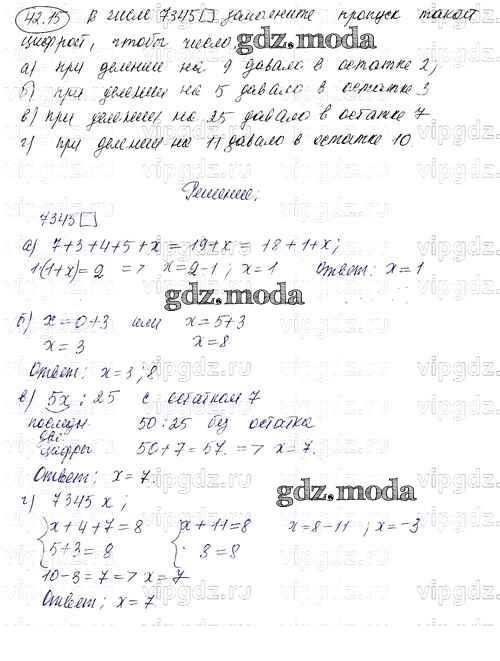 42.15 В числе 7345□ заполните пропуск такой
цифрой, чтобы число:
gdz.moda
а) при делении на 9 давало в остатке 2;
б) при делении на 5 давало в остатке 3
в) при делении на 25 давало в остатке 7
г) при делении на 11 давало в остатке 10.
Решение:
7345□
а) 7+3+4+5+x = 19+x = 18+1+x;
(1+x)=2 => x=2-1; x=1 Ответ: x=1
gdz.moda
б) x=0+3 или x=5+3
x=3 x=8
Ответ: x=3; 8
в) 5x : 25 с остатком 7
последн. 50:25 без остатка
две
цифры 50+7=57. => x=7.
Ответ: x=7.
gdz.moda
г) 7345x;
x+4+7=8 x+11=8 x=8-11; x=-3
5+3=8 3=8
10-3=7 => x=7
Ответ: x=7
gdz.moda
vipgdz.ru